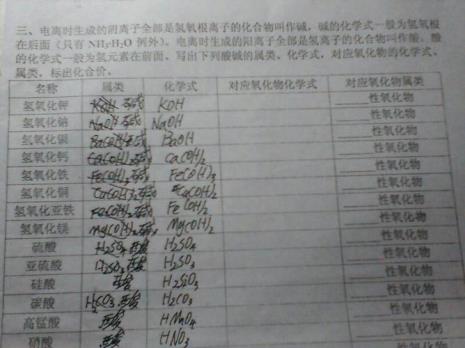 三、电离时生成的阴离子全部是氢氧根离子的化合物叫作碱,碱的化学式一般为氢氧根
在后面(只有 NH₃·H₂O 例外)。电离时生成的阳离子全部是氢离子的化合物叫作酸,酸
的化学式一般为氢元素在前面。写出下列酸碱的属类、化学式,对应氧化物的化学式、
属类,标出化合价。
名称 属类 化学式 对应氧化物化学式 对应氧化物属类
氢氧化钾 KOH 碱 KOH ____性氧化物
氢氧化钠 NaOH 碱 NaOH ____性氧化物
氢氧化钡 碱 BaOH ____性氧化物
氢氧化钙 Ca(OH)₂ 碱 Ca(OH)₂ ____性氧化物
氢氧化铁 Fe(OH)₃ 碱 Fe(OH)₃ ____性氧化物
氢氧化铜 碱 Ca(OH)₂ ____性氧化物
氢氧化亚铁 Fe(OH)₂ 碱 Fe(OH)₂ ____性氧化物
氢氧化镁 Mg(OH)₂ 碱 Mg(OH)₂ ____性氧化物
硫酸 H₂SO₄ 酸 H₂SO₄ ____性氧化物
亚硫酸 H₂SO₃ 酸 H₂SO₃ ____性氧化物
硅酸 酸 H₂SiO₃ ____性氧化物
碳酸 H₂CO₃ 酸 H₂CO₃ ____性氧化物
高锰酸 酸 HMnO₄ ____性氧化物
硝酸 酸 HNO₃ 性氧化物